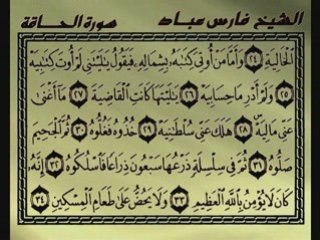 الشيخ فارس عباد سورة الحاقة
الْخَالِيَةِ ﴿٢٤﴾ وَأَمَّا مَنْ أُوتِىَ كِتَٰبَهُۥ بِشِمَالِهِۦ فَيَقُولُ يَٰلَيْتَنِى لَمْ أُوتَ كِتَٰبِيَهْ
﴿٢٥﴾ وَلَمْ أَدْرِ مَا حِسَابِيَهْ ﴿٢٦﴾ يَٰلَيْتَهَا كَانَتِ الْقَاضِيَةَ ﴿٢٧﴾ مَا أَغْنَىٰ
عَنِّى مَالِيَهْ ﴿٢٨﴾ هَلَكَ عَنِّى سُلْطَٰنِيَهْ ﴿٢٩﴾ خُذُوهُ فَغُلُّوهُ ﴿٣٠﴾ ثُمَّ الْجَحِيمَ
صَلُّوهُ ﴿٣١﴾ ثُمَّ فِى سِلْسِلَةٍ ذَرْعُهَا سَبْعُونَ ذِرَاعًا فَاسْلُكُوهُ ﴿٣٢﴾ إِنَّهُۥ
كَانَ لَا يُؤْمِنُ بِاللَّهِ الْعَظِيمِ ﴿٣٣﴾ وَلَا يَحُضُّ عَلَىٰ طَعَامِ الْمِسْكِينِ ﴿٣٤﴾